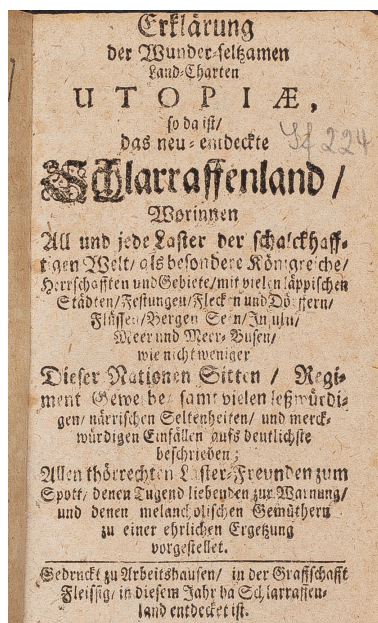 Erklärung
der Wunder-seltzamen
Land-Charten
UTOPIÆ,
so da ist/
das neu-entdeckte
Schlarraffenland/
Worinnen
All und jede Laster der schalckhaff-
tigen Welt/ als besondere Königreiche/
Herrschafften und Gebiete/ mit vielen läppischen
Städten/ Festungen/ Flecken und Dörffern/
Flüssen/ Bergen/ Seen/ Insuln/
Meer und Meer-Busen/
wie nicht weniger
Dieser Nationen Sitten/ Regi-
ment Gewerbe samt vielen leßwürdi-
gen/ närrischen Seltenheiten/ und merck-
würdigen Einfällen aufs deutlichste
beschrieben;
Allen thörrechten Laster-Freunden zum
Spott/ denen Tugend liebenden zur Warnung/
und denen melancholischen Gemüthern
zu einer ehrlichen Ergetzung
vorgestellet.
Gedruckt zu Arbeitshausen/ in der Graffschafft
Fleissig/ in diesem Jahr da Schlarraffen-
land entdecket ist.
224